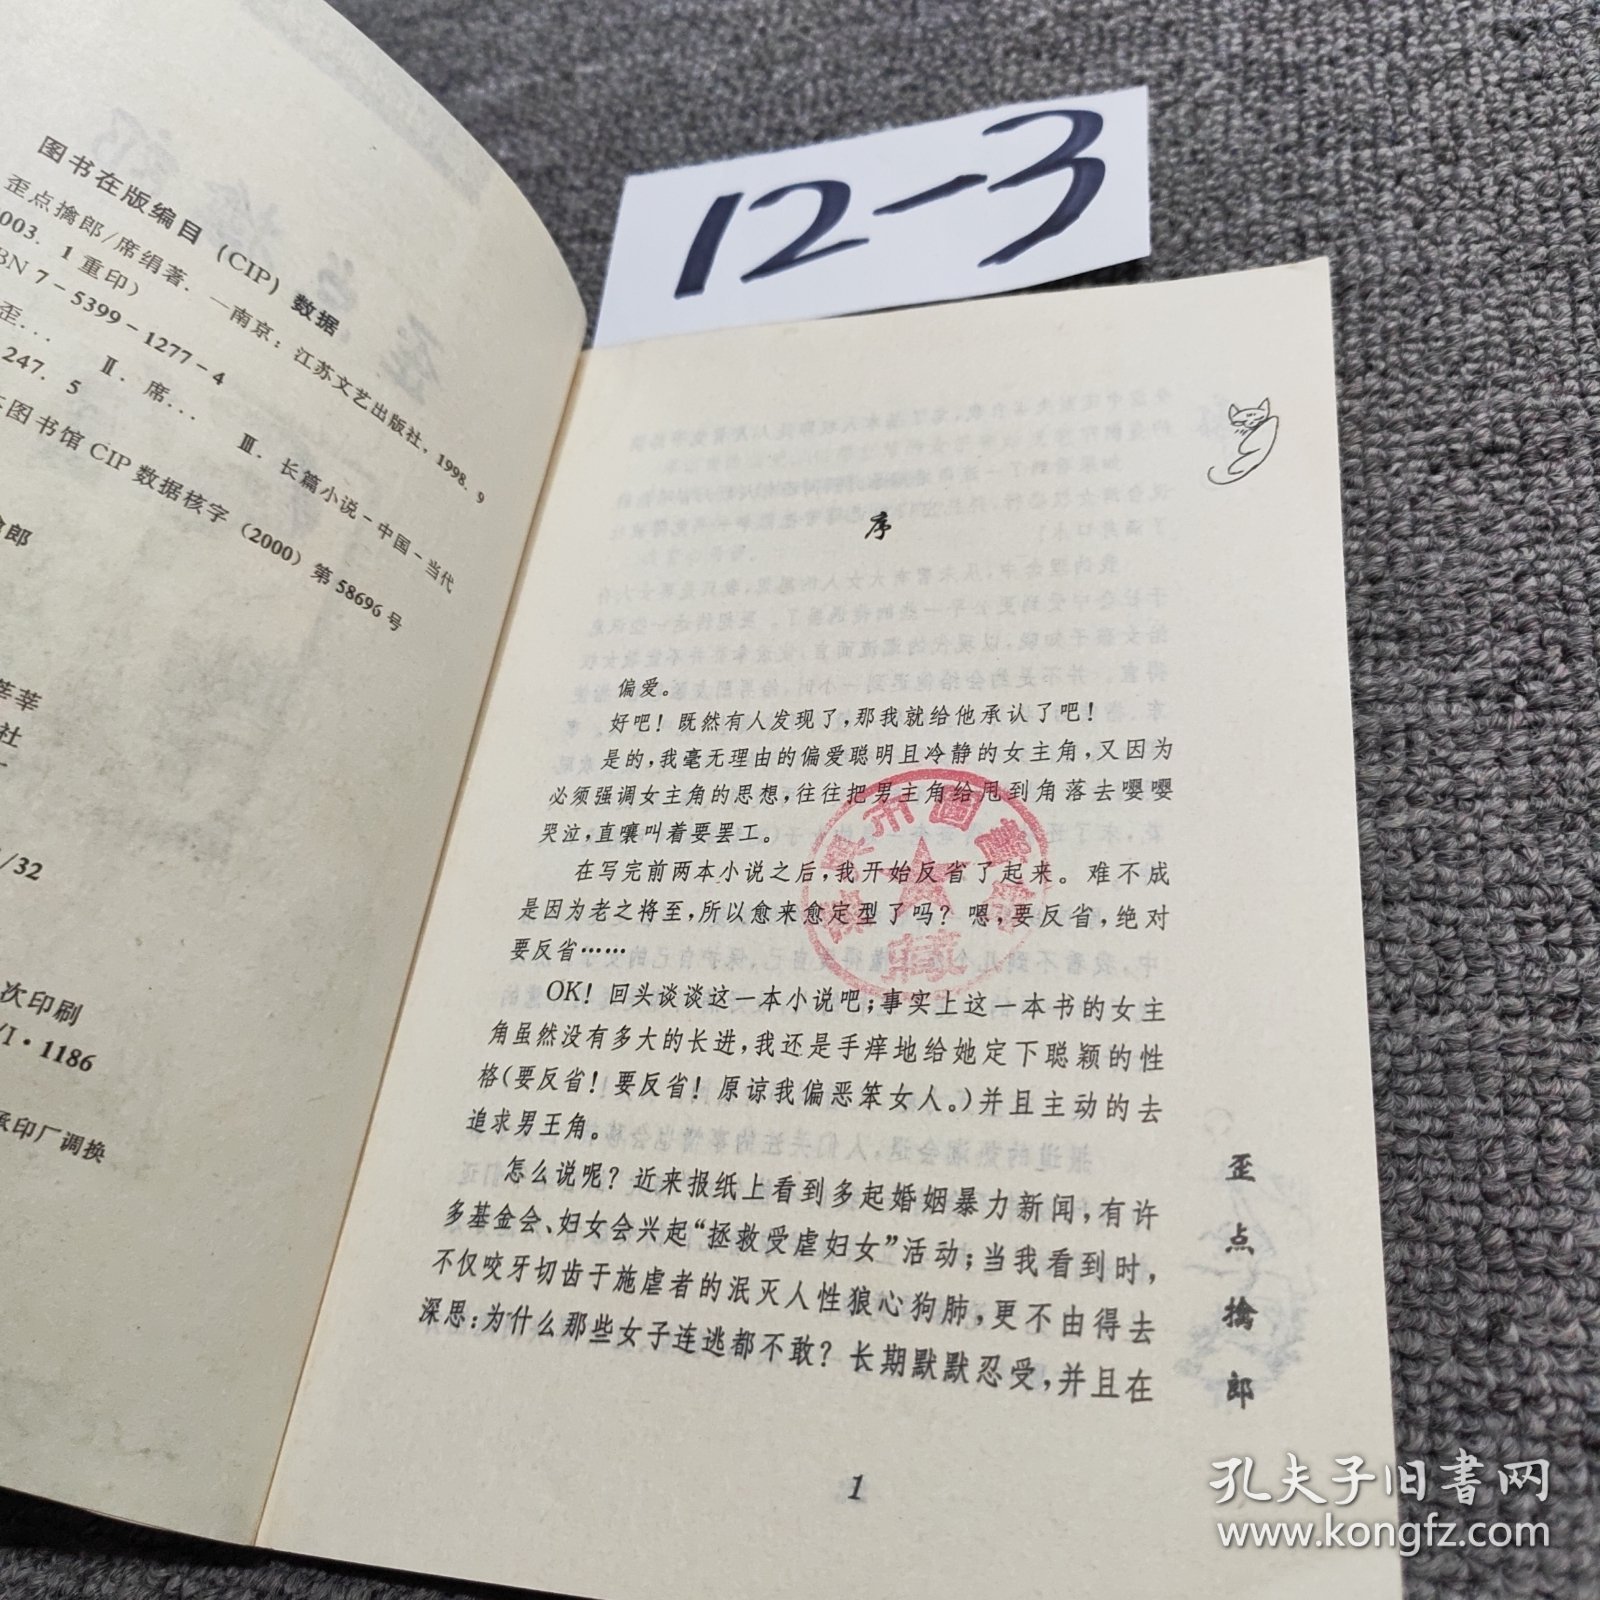 图书在版编目（CIP）数据
歪点擒郎/席绢著．—南京：江苏文艺出版社，1998．9
003．1重印）
BN 7－5399－1277－4
歪… Ⅱ．席… Ⅲ．长篇小说－中国－当代
247．5
图书馆CIP数据核字（2000）第58696号
郎
莘莘
社
/32
次印刷
/I·1186
承印厂调换
12-3
序
偏爱。
好吧！既然有人发现了，那我就给他承认了吧！
是的，我毫无理由的偏爱聪明且冷静的女主角，又因为
必须强调女主角的思想，往往把男主角给甩到角落去嘤嘤
哭泣，直嚷叫着要罢工。
在写完前两本小说之后，我开始反省了起来。难不成
是因为老之将至，所以愈来愈定型了吗？嗯，要反省，绝对
要反省……
OK！回头谈谈这一本小说吧；事实上这一本书的女主
角虽然没有多大的长进，我还是手痒地给她定下聪颖的性
格（要反省！要反省！原谅我偏恶笨女人。）并且主动的去
追求男王角。
怎么说呢？近来报纸上看到多起婚姻暴力新闻，有许
多基金会、妇女会兴起“拯救受虐妇女”活动；当我看到时，
不仅咬牙切齿于施虐者的泯灭人性狼心狗肺，更不由得去
深思：为什么那些女子连逃都不敢？长期默默忍受，并且在
1
歪点擒郎
孔夫子旧书网
www.kongfz.com